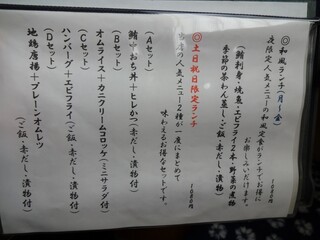 ◎和風ランチ(月〜金) 1080円
夜限定人気メニューの和風定食がランチでお得に
お楽しみいただけます。
(鮪刺身・焼魚・エビフライ2本・野菜の煮物
季節の茶わん蒸し・ご飯・赤だし・漬物)
◎土日祝日限定ランチ 1080円
当店の人気メニュー2種が一度にまとめて
味わえるお得なセットです。
(Aセット)
鮪中おち丼+ヒレかつ(赤だし・漬物付)
(Bセット)
オムライス+カニクリームコロッケ(ミニサラダ付)
(Cセット)
ハンバーグ+エビフライ(ご飯・赤だし・漬物付)
(Dセット)
地鶏唐揚+プレーンオムレツ
(ご飯・赤だし・漬物付)